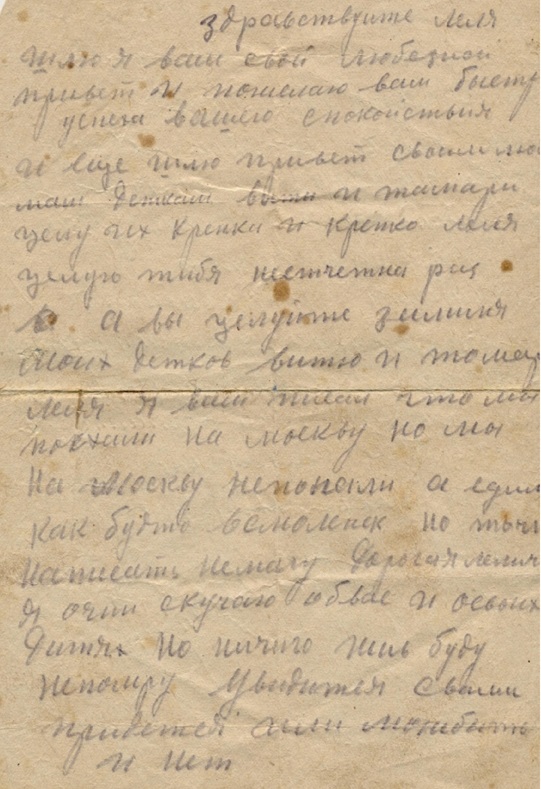 здравствуите леля
шлю я вам свой любезной
привет и пожелаю вам быстр
успеха вашею спокойствия
и еще шлю привет своим
маш деткам вити и тамари
целу их крепка и крепко леля
целую тибя несчетна раз
а вы целуйте за миня
моих детков витю и тамар
леля я вам писал что мы
поехали на москву но мы
на москву непопали а едим
как будто всмоленск но точн
написать немагу Дорогая леличк
я очин скучаю обвас и освоих
Дитях но ничиго жив буду
непомру Увидится свами
придется или можибыть
и нет